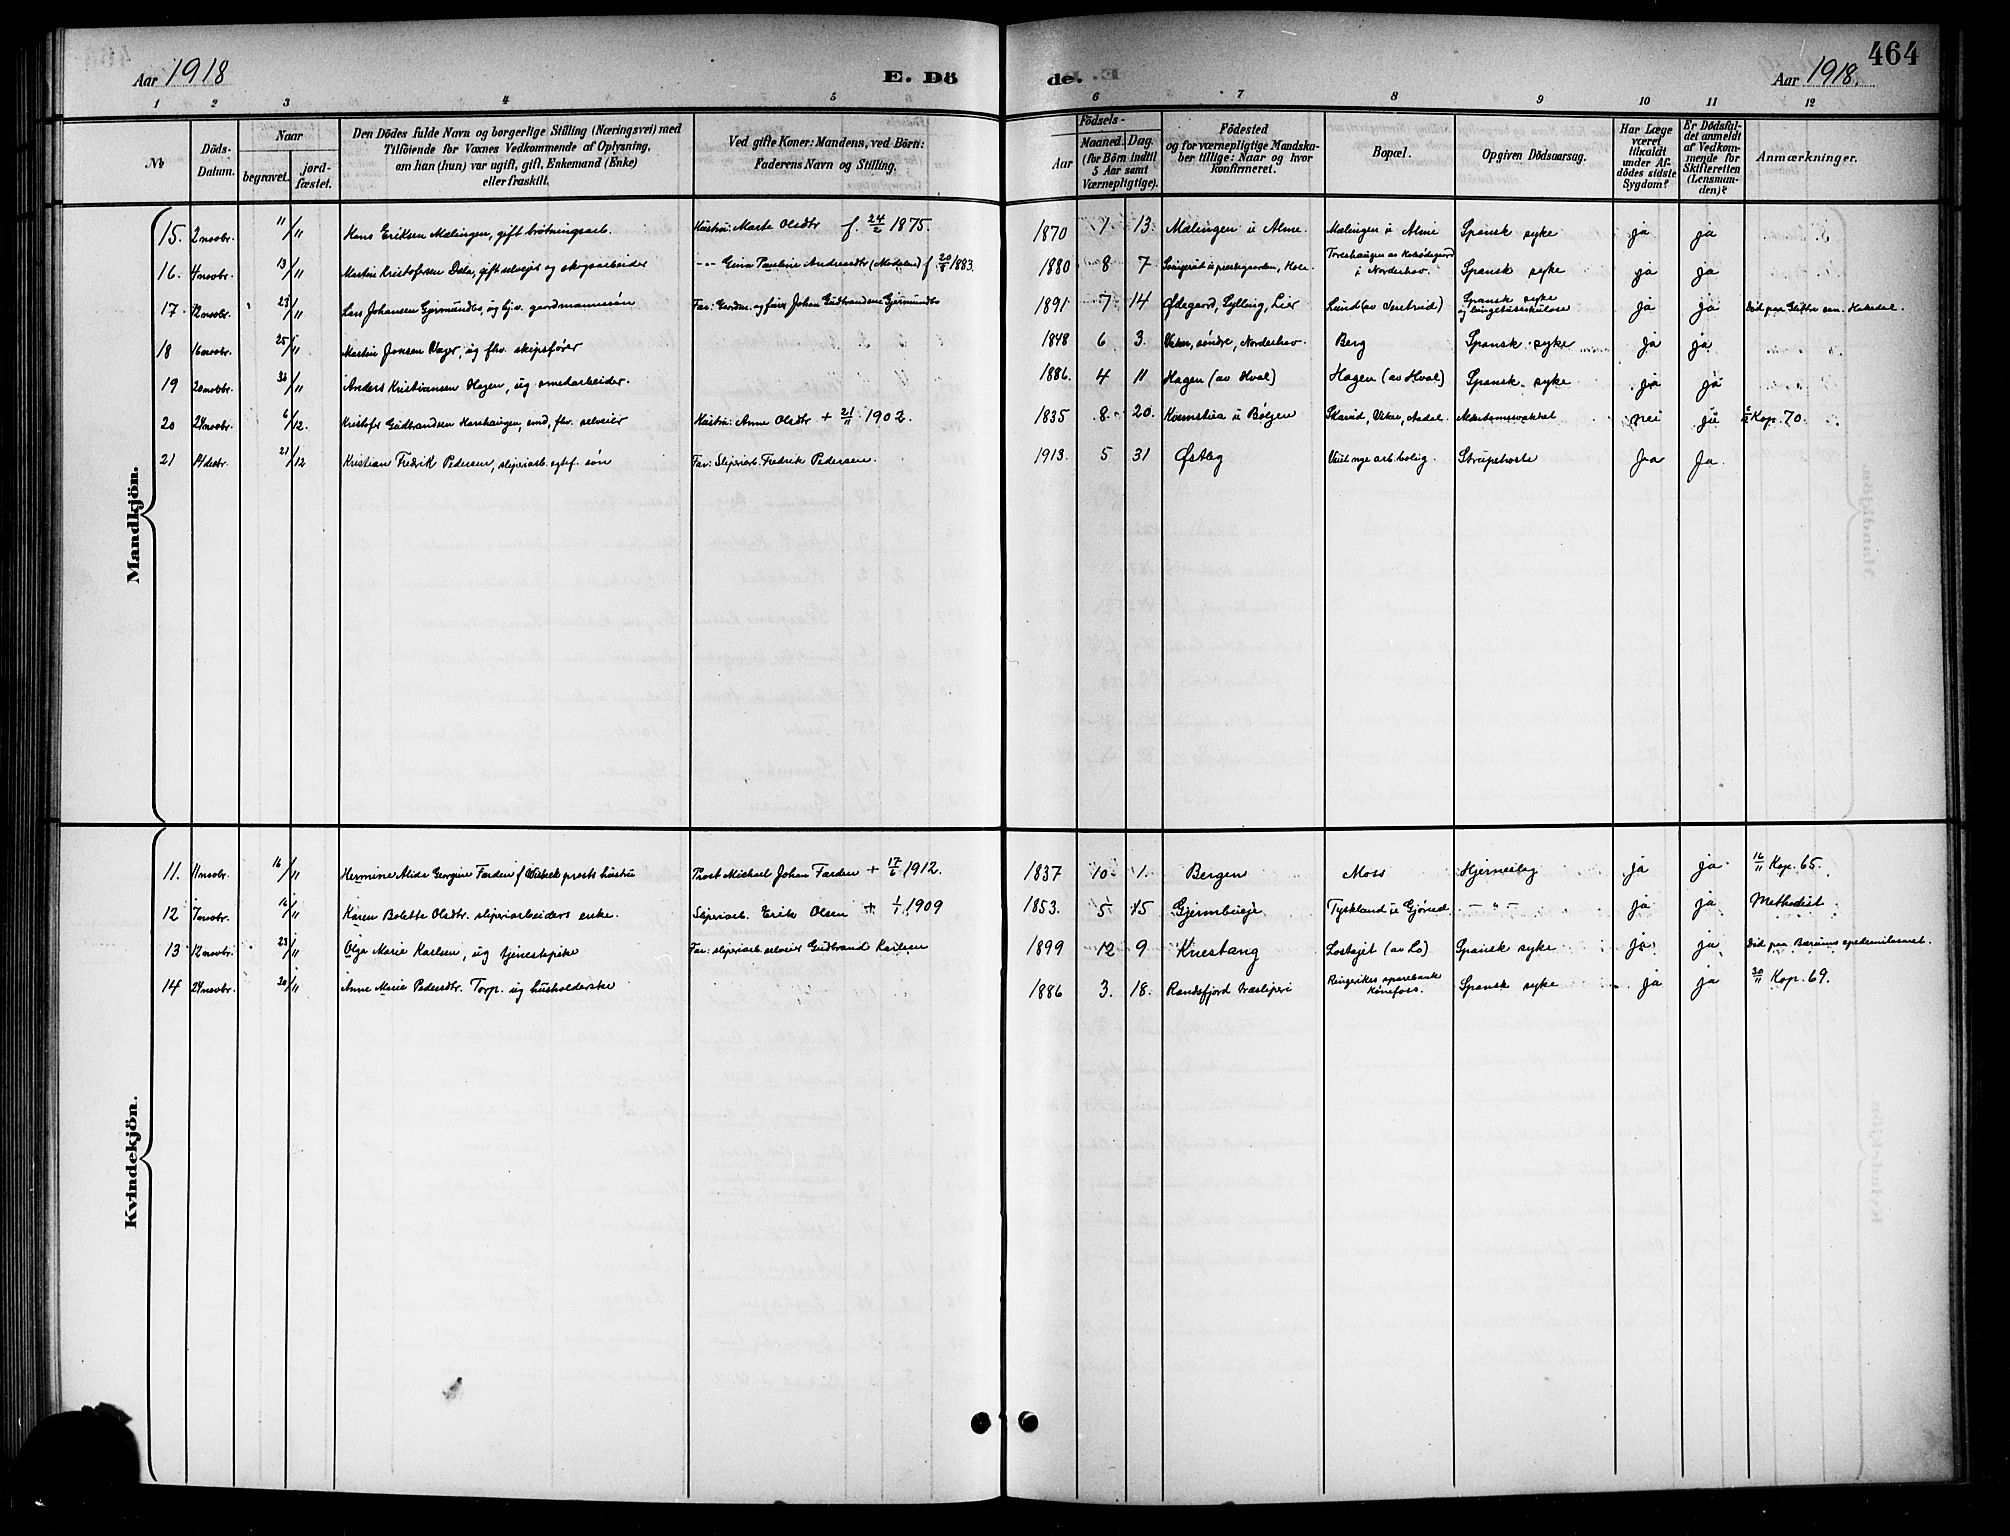 Aar 1918
E. Dö
de.
464
Aar 1918.
1 2 3 4 5 6 7 8 9 10 11 12
No
Döds-
Datum.
Naar
begravet.
jord-
fæstet.
Den Dödes fulde Navn og borgerlige Stilling (Næringsvei) med
Tilföiende for Voxnes Vedkommende af Oplysning,
om han (hun) var ugift, gift, Enkemand (Enke)
eller fraskilt.
Ved gifte Koner: Mandens, ved Börn:
Faderens Navn og Stilling.
Födsels-
Aar
Maaned.
Dag.
(for Börn indtil
5 Aar samt
Værnepligtige).
Födested
og for værnepligtige Mandska-
ber tillige: Naar og hvor
konfirmeret.
Bopæl.
Opgiven Dödsaarsag.
Har Læge
været
tilkaldt
under Af-
dödes sidste
Sygdom?
Er Dödsfal-
det anmeldt
af Vedkom-
mende for
Skifteretten
(Lensman-
den)?
Anmærkninger.
Mandkjön.
15. 2 novbr. 11/11 Hans Eriksen Mælingen, gift brøtningsarb. Hustru: Marte Olsdtr f. 24/2 1875. 1870 7 13 Mælingen u Alme. Mælingen u Alme Spansk syke ja ja
16. 4 novbr. 13/11 Martin Kristofersen Dala, gift selveier og skogsarbeider -"- Gina Pauline Andreasdtr (Modalen) f 20/8 1883. 1880 8 7 prestegaarden, Hole Toreshaugen av i Norderhov. Spansk syke ja ja
17. 12 novbr. 23/11 Lars Johansen Gjermundbo, ug hjv. gaardmannssøn Far: Gerdm. og Johan Gudbrandsen Gjermundbo 1891 7 14 Ødegaard, Sylling, Lier Lund (av Veretrud) Spansk syke og lungetuberkulose ja ja Død paa Glittre san. Hakedal.
18 16 novbr. 25/11 Martin Jonsen Vager, ug fhv. skipsfører 1848 6 3. Viker, søndre, Norderhov. Berg Spansk syke ja ja
19 20 novbr. 30/11 Anders Kristiansen Hagen, ug smedarbeider. 1886. 4 11 Hagen (av Hval) Hagen (av Hval) Spansk syke ja ja
20 24 novbr. 6/12. Kristofer Gudbrandsen emd, fhv. selveier Hustru: Anne Olsdtr + 21/11 1902. 1835 8 20. u Bølgen Viker, Aadal. nei ja Kop. 70.
21 14 desbr. 21/12 Kristian Fredrik Pedersen, sliperiarb. egtef. søn Far: Sliperiarb. Fredrik Pedersen. 1913. 5 31 Østby nye arb. bolig. Strupehoste Ja Ja.
Kvindekjön.
11. 11 novbr. 16/11 Hermine Alida Georgine Farden f prosts hustru Prost Michael Johan Farden + 17/6 1912. 1837 10 1. Bergen Moss Hjerneslag ja ja 16/11 Kop. 65.
12 7 novbr. 16/11 Karen Bolette Olsdtr. sliperiarbeiders enke. Sliperiarb. Erik Olsen + 1/1 1909 1853. 5 15 Gjermbueje Tyskland u Gjørud - " - ja ja Methodist
13 12 novbr. 23/11 Olga Marie Karlsen, ug tjenestepike Far: sliperiarb. selveier Gudbrand Karlsen 1899 12 9 Knestang Lostøjet (av Lo) Spansk syke ja ja Død paa Bærums epedemilasaret.
14 24 novbr. 30/11 Anne Marie Pedersdtr. Torp. ug husholderske 1886 3. 18. Randsfjord træsliperi Ringerikes sparebank Hønefoss. Spansk syke ja ja 30/11 Kop. 69.